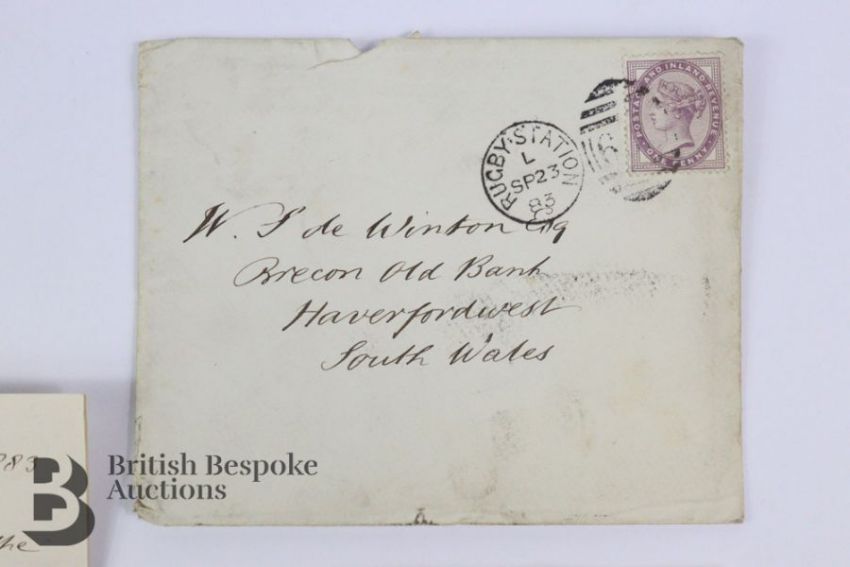 POSTAGE AND INLAND REVENUE
ONE PENNY
RUGBY·STATION
L
SP23
83
W. S de Winton Esq
Brecon Old Bank
Haverfordwest
South Wales
British Bespoke
Auctions
B